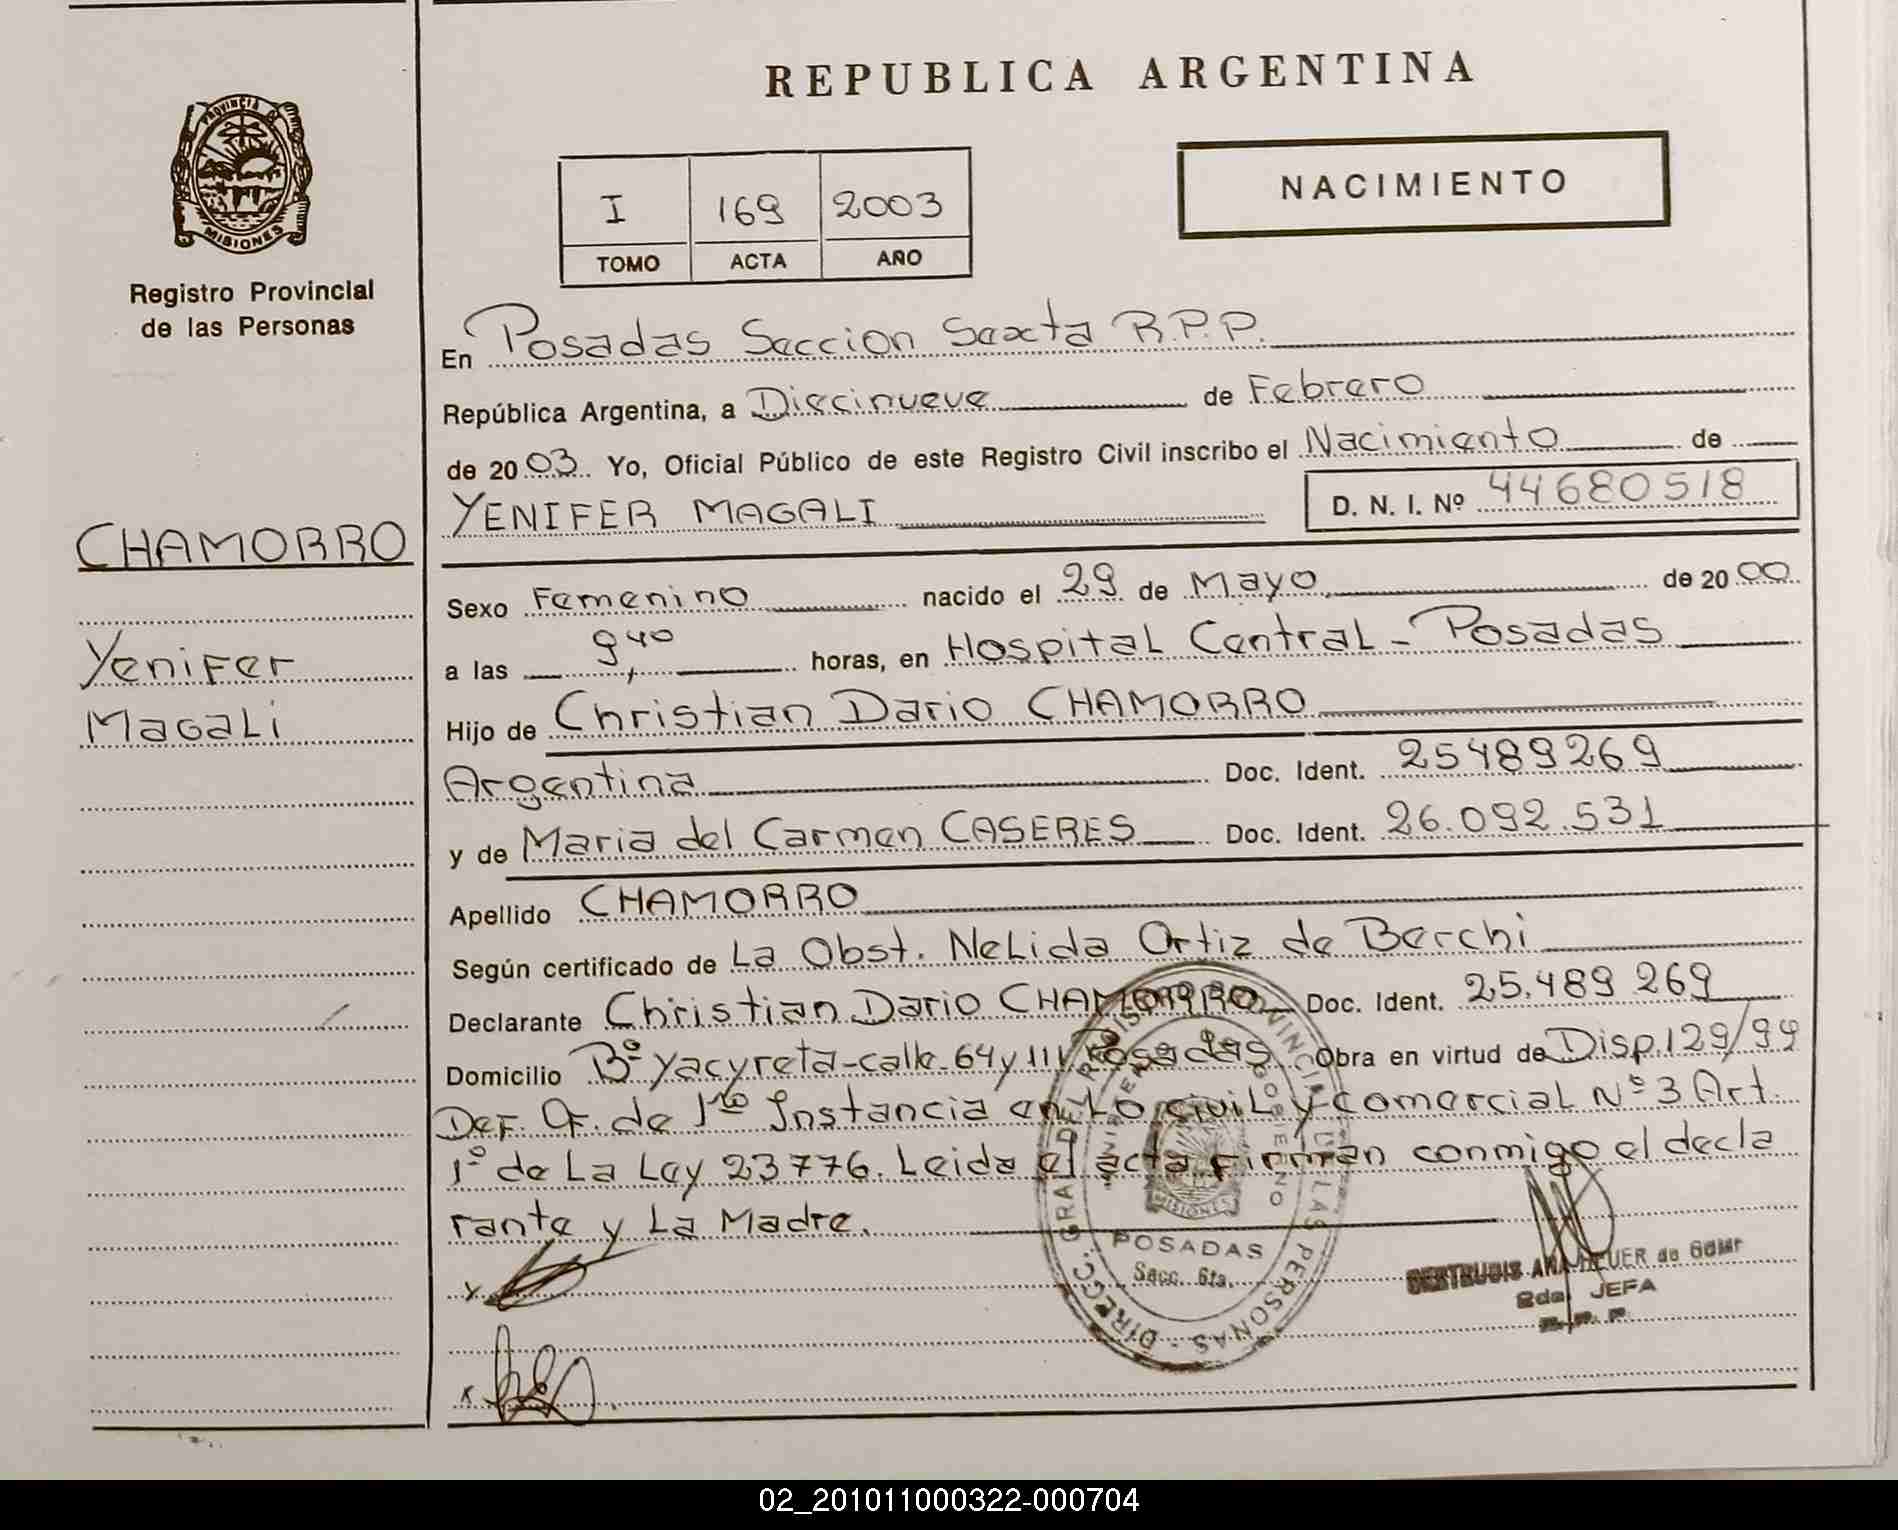 REPUBLICA ARGENTINA
PROVINCIA DE
MISIONES
Registro Provincial
de las Personas
I 169 2003
TOMO ACTA AÑO
NACIMIENTO
CHAMORRO
Yenifer
Magali
En Posadas Seccion Sexta R.P.P.
República Argentina, a Diecinueve de Febrero
de 2003. Yo, Oficial Público de este Registro Civil inscribo el Nacimiento de
YENIFER MAGALI D. N. I. Nº 44680518
Sexo Femenino nacido el 29 de Mayo de 2000
a las 9,40 horas, en Hospital Central - Posadas
Hijo de Christian Dario CHAMORRO
Argentina Doc. Ident. 25489269
y de Maria del Carmen CASERES Doc. Ident. 26.092.531
Apellido CHAMORRO
Según certificado de La Obst. Nelida Ortiz de Berchi
Declarante Christian Dario CHAMORRO Doc. Ident. 25.489 269
Domicilio Bº Yacyreta-calle 64 y 111 Posadas Obra en virtud de Disp. 129/99
Def. Of. de 1ra Instancia en Lo civil y comercial Nº 3 Art.
1º de La Ley 23776. Leida el acta firman conmigo el decla
rante y La Madre.
DIRECC. GRAL DEL REGISTRO PROVINCIAL DE LAS PERSONAS
MISIONES
POSADAS
Secc. 6ta.
de
2da JEFA
R.P.P.
02_201011000322-000704